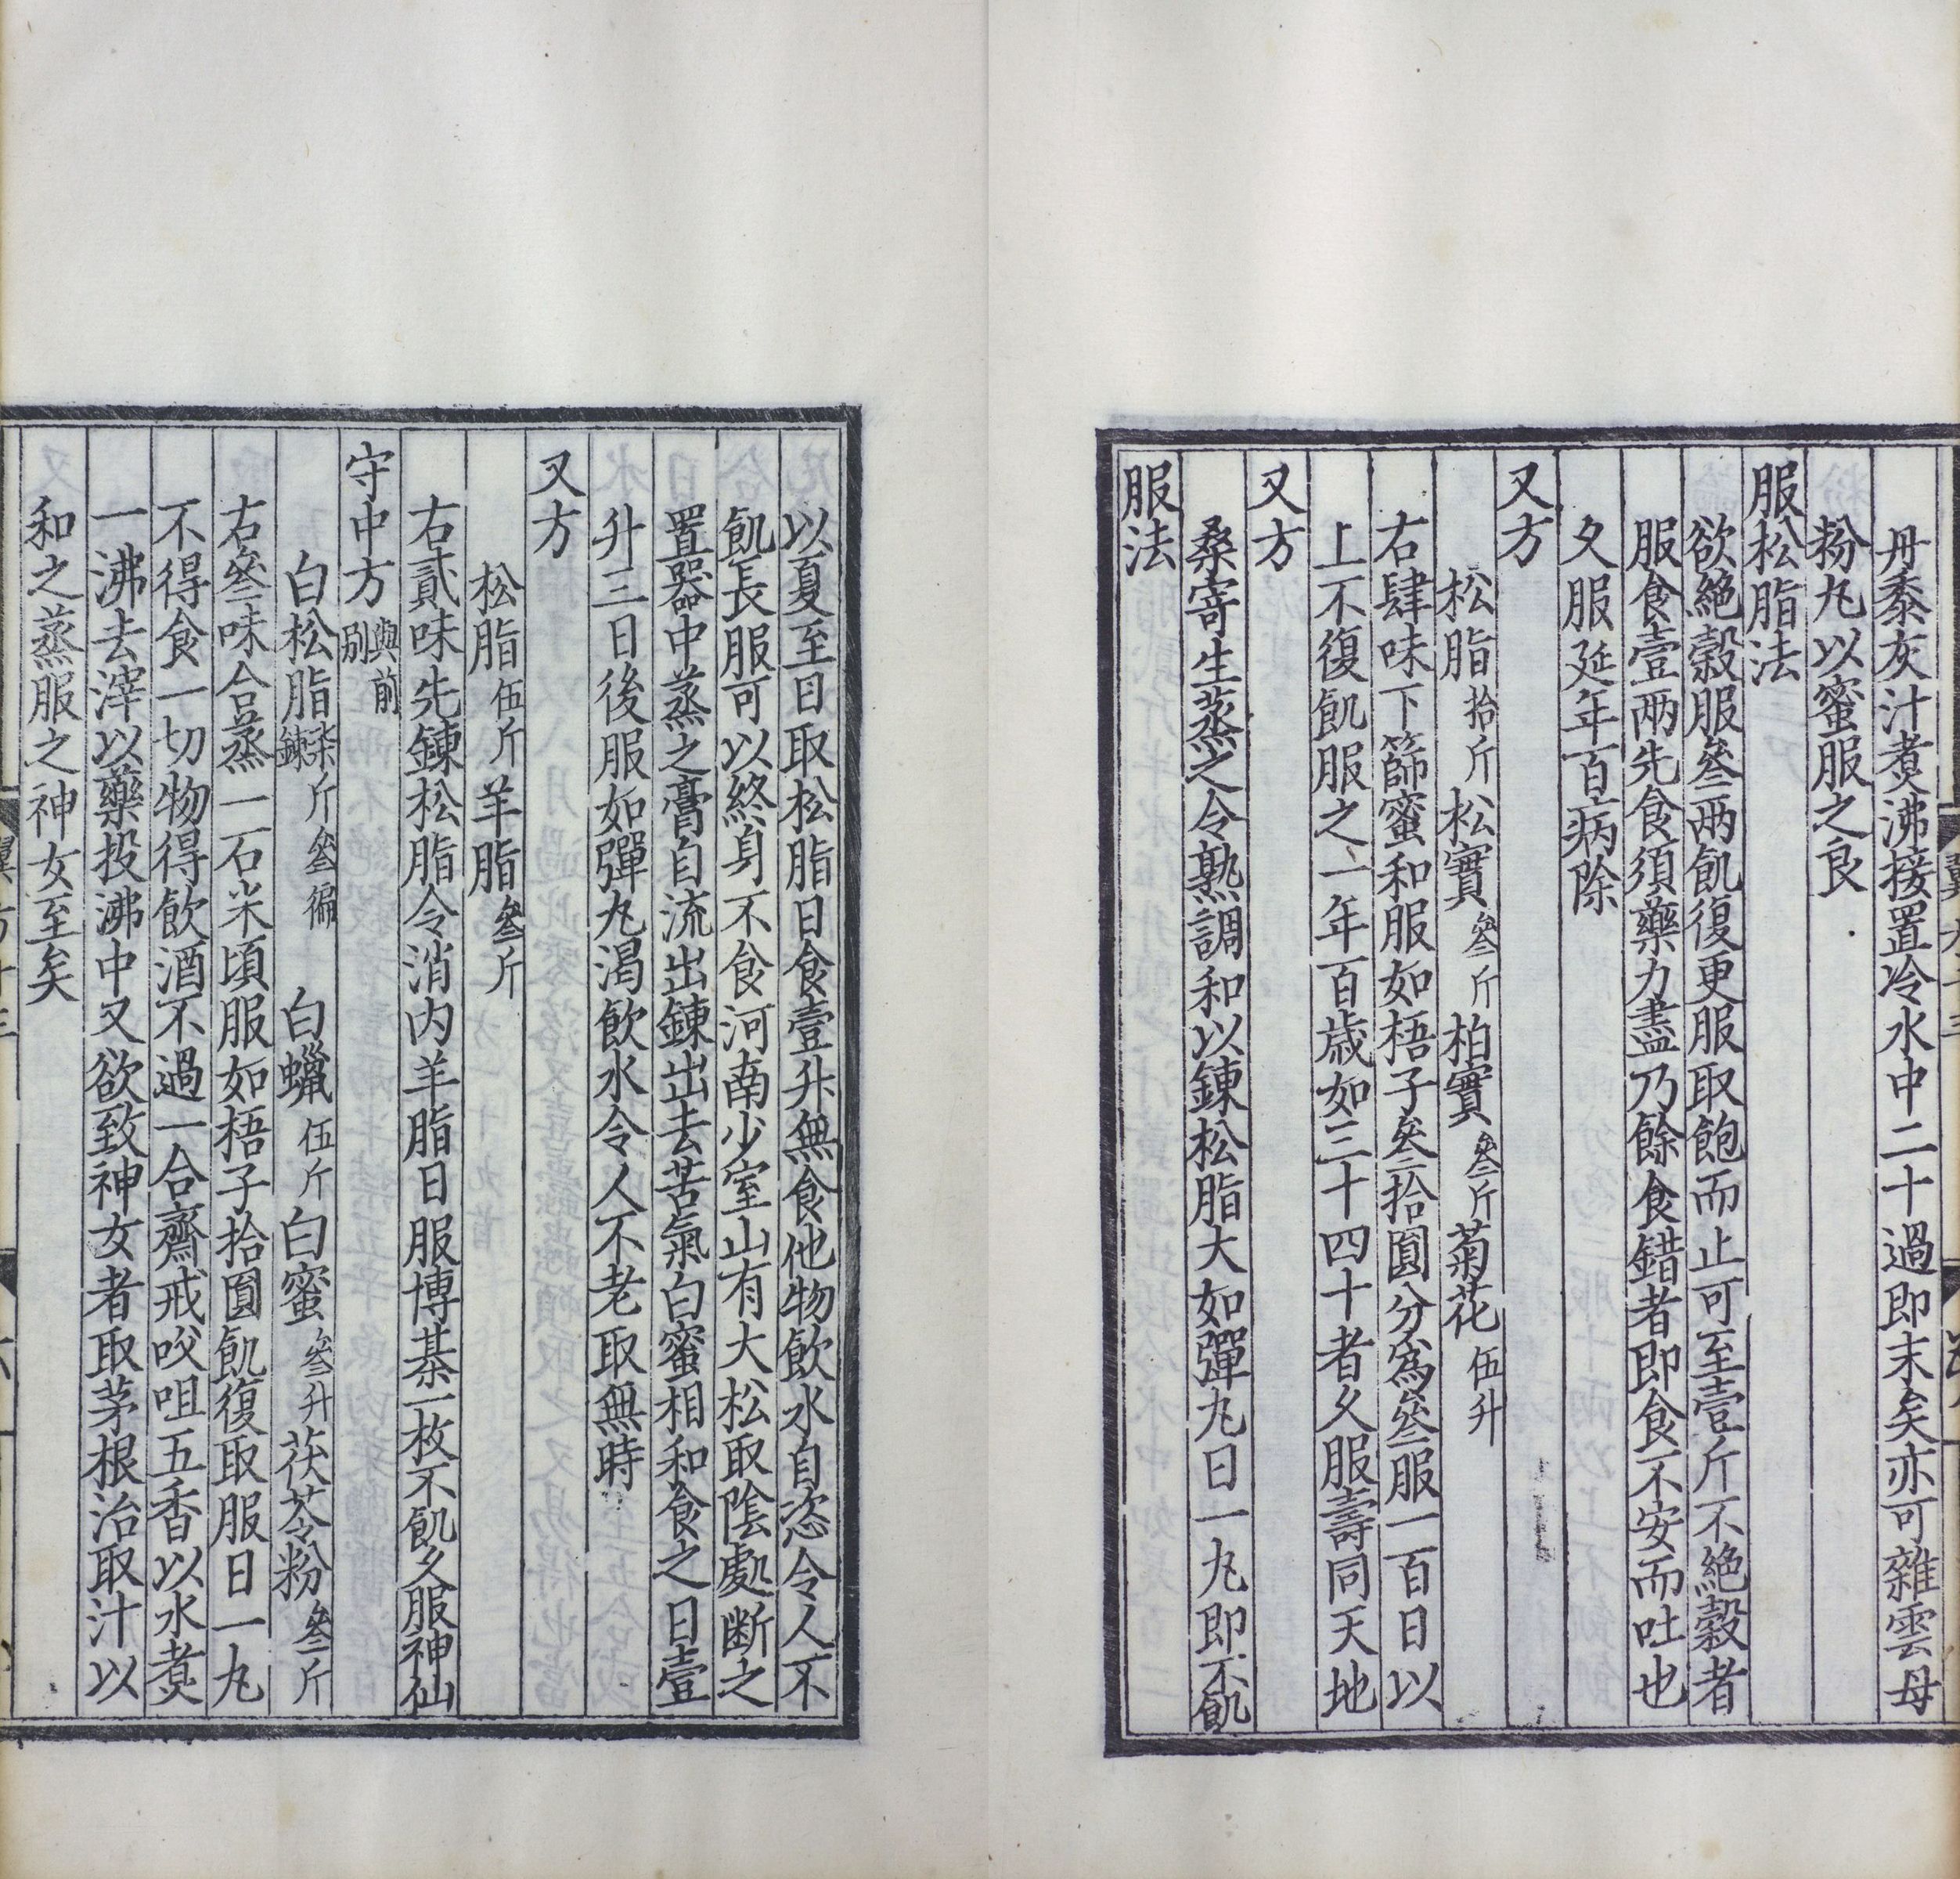 丹黍灰汁煮沸接置冷水中二十過即末矣亦可雜雲母
粉丸以蜜服之良
服松脂法
欲絕穀服叄兩飢復更服取飽而止可至壹斤不絕穀者
服食壹兩先食須藥力盡乃餘食錯者即食不安而吐也
久服延年百病除
又方
松脂拾斤松實叄斤柏實叄斤菊花伍升
右肆味下篩蜜和服如梧子叄拾圓分爲叄服一百日以
上不復飢服之一年百歲如三十四十者久服壽同天地
又方
桑寄生蒸之令熟調和以鍊松脂大如彈丸日一丸即不飢
服法
以夏至日取松脂日食壹升無食他物飲水自恣令人不
飢長服可以終身不食河南少室山有大松取陰處断之
置器中蒸之膏自流出鍊出去苦氣白蜜相和食之日壹
升三日後服如彈丸渴飲水令人不老取無時
又方
松脂伍斤羊脂叄斤
右貳味先鍊松脂令消內羊脂日服博棊一枚不飢久服神仙
守中方與前別
白松脂柒斤叄徧鍊 白蠟伍斤白蜜叄升茯苓粉叄斤
右叄味合蒸一石米頃服如梧子拾圓飢復取服日一丸
不得食一切物得飲酒不過一合齋戒㕮咀五香以水煮
一沸去滓以藥投沸中又欲致神女者取茅根治取汁以
和之蒸服之神女至矣